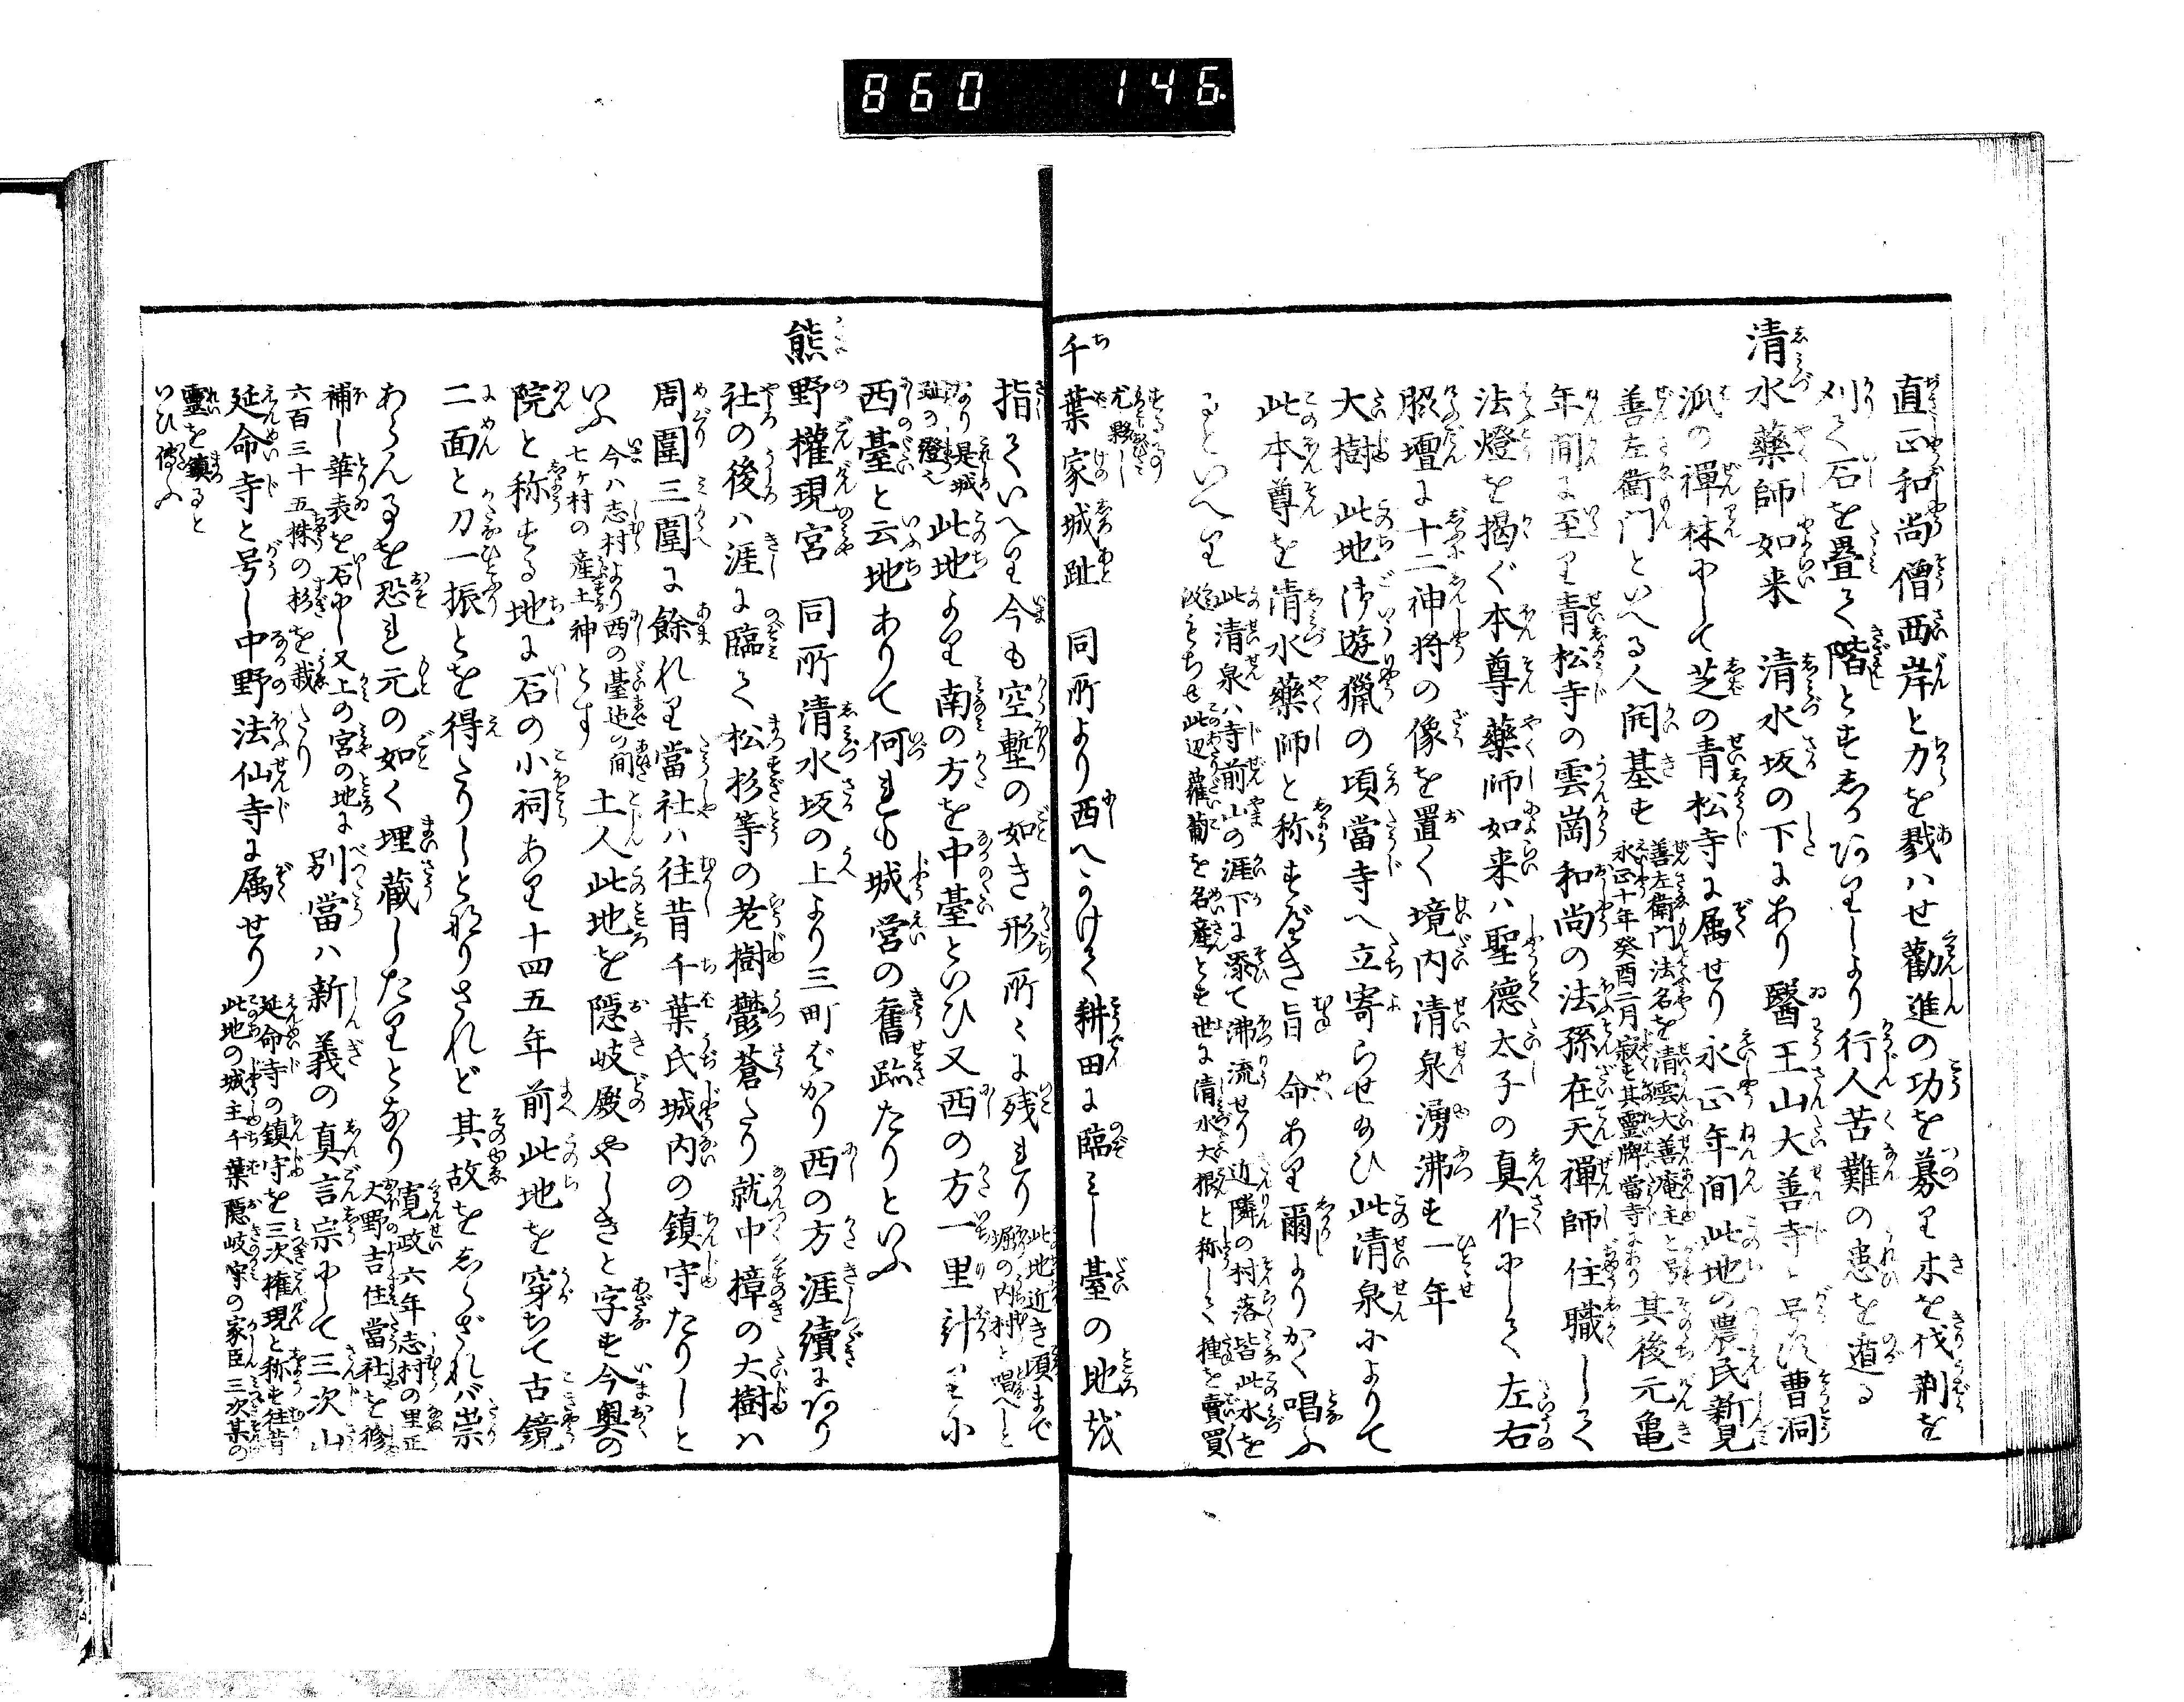 860 146
直正和尚僧西岸と力を戮ハせ勸進の功を募り木を伐荊を
刈て石を疊て階とすしかありしより行人苦難の患を遁る
清水藥師如来 清水坂の下にあり醫王山大善寺と号す曹洞
派の禪林にして芝の青松寺に属せり永正年間此地の農民新見
善左衛門といへる人開基す
善左衛門法名を清雲大善庵主と号
永正十年癸酉二月寂す其霊牌當寺にあり
其後元亀
年間に至り青松寺の雲崗和尚の法孫在天禪師住職して
法燈を掲ぐ本尊藥師如来ハ聖徳太子の真作にして左右
脇壇に十二神将の像を置く境内清泉湧沸す一年
大樹此地御遊獵の頃當寺へ立寄らせ給ひ此清泉によりて
此本尊を清水藥師と称すべき旨 命あり爾よりかく唱ふ
るといへり
此清泉ハ寺前山の涯下に添て沸流せり近隣の村落皆此水を
汲もちゆ此辺蘿蔔を名産とす世に清水大根と称して種を賣買
するもの
尤夥し
千葉家城趾 同所より西へかけて耕田に臨みし臺の地を
指ていへり今も空塹の如き形所々に残れり
此地近き頃まで
堀の内村と唱へし
なり是城
趾の證なり
此地より南の方を中臺といひ又西の方一里計り小
西臺と云地ありて何れも城営の舊跡たりといふ
熊野權現宮 同所清水坂の上より三町ばかり西の方涯續にあり
社の後ハ涯に臨て松杉等の老樹鬱蒼たり就中樟の大樹ハ
周圍三圍に餘れり當社ハ往昔千葉氏城内の鎮守たりしと
いふ
今ハ志村より西の臺迄の間
七ヶ村の産土神とす
土人此地を隠岐殿やしきと字す今奥の
院と称する地に石の小祠あり十四五年前此地を穿ちて古鏡
二面と刀一振とを得たりしとなりされど其故をしらざれバ祟
あらん事を恐れ元の如く埋蔵したりとなり
寛政六年志村の里正
大野吉住當社を修
補し華表を石にし又上の宮の地に
六百三十五株の杉を栽たり
別當ハ新義の真言宗にして三次山
延命寺と号し中野法仙寺に属せり
延命寺の鎮守を三次権現と称す往昔
此地の城主千葉隠岐守の家臣三次某の
靈を鎮ると
いひ傳ふ